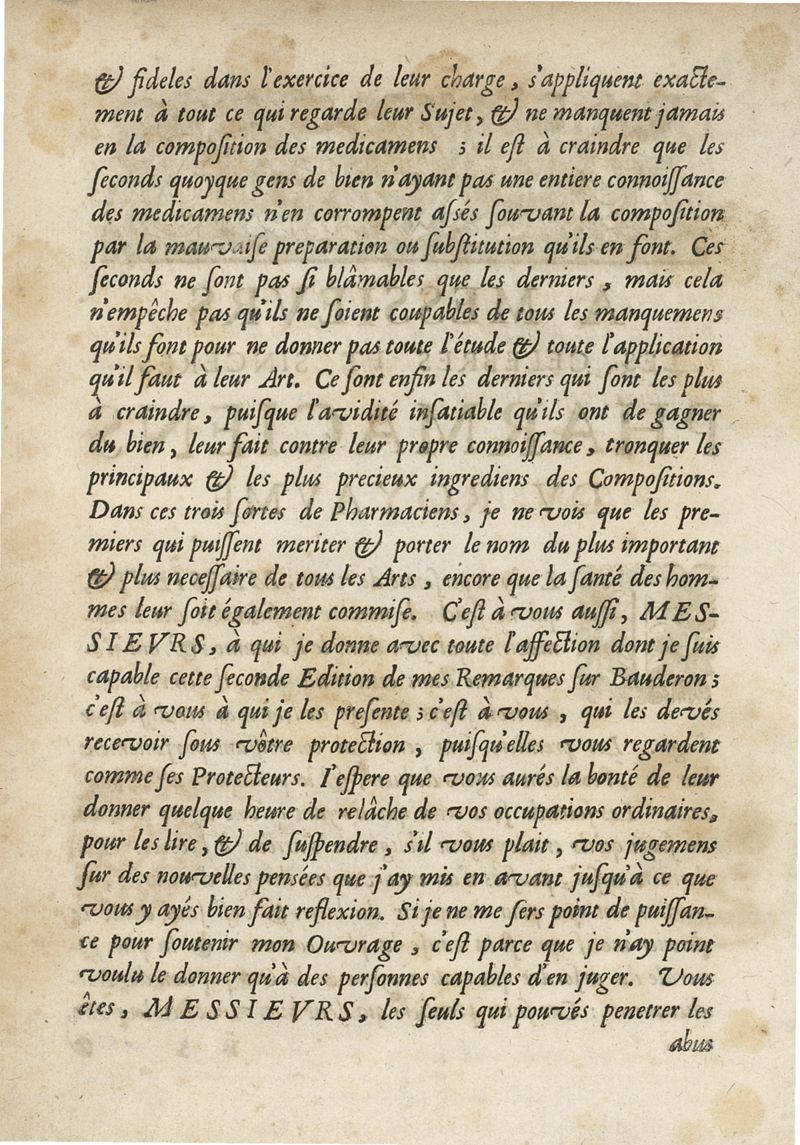 & fideles dans l'exercice de leur charge, s'appliquent exacte-
ment à tout ce qui regarde leur Sujet, & ne manquent jamais
en la compoſition des medicamens ; il eſt à craindre que les
ſeconds quoyque gens de bien n'ayant pas une entiere connoiſſance
des medicamens n'en corrompent aſsés ſouvant la compoſition
par la mauvaiſe preparation ou ſubſtitution qu'ils en font. Ces
ſeconds ne ſont pas ſi blâmables que les derniers, mais cela
n'empêche pas qu'ils ne ſoient coupables de tous les manquemens
qu'ils font pour ne donner pas toute l'étude & toute l'application
qu'il faut à leur Art. Ce ſont enfin les derniers qui ſont les plus
à craindre, puiſque l'avidité inſatiable qu'ils ont de gagner
du bien, leur fait contre leur propre connoiſſance, tronquer les
principaux & les plus precieux ingrediens des Compoſitions.
Dans ces trois ſortes de Pharmaciens, je ne vois que les pre-
miers qui puiſſent meriter & porter le nom du plus important
& plus neceſſaire de tous les Arts, encore que la ſanté des hom-
mes leur ſoit également commiſe. C'eſt à vous auſſi, MES-
SIEVRS, à qui je donne avec toute l'affection dont je ſuis
capable cette ſeconde Edition de mes Remarques ſur Bauderon ;
c'eſt à vous à qui je les preſente ; c'eſt à vous, qui les devés
recevoir ſous vôtre protection, puiſqu'elles vous regardent
comme ſes Protecteurs. I'eſpere que vous aurés la bonté de leur
donner quelque heure de relâche de vos occupations ordinaires,
pour les lire, & de ſuſpendre, s'il vous plait, vos jugemens
ſur des nouvelles pensées que j'ay mis en avant juſqu'à ce que
vous y ayés bien fait reflexion. Si je ne me ſers point de puiſſan-
ce pour ſoutenir mon Ouvrage, c'eſt parce que je n'ay point
voulu le donner qu'à des perſonnes capables d'en juger. Vous
êtes, MESSIEVRS, les ſeuls qui pouvés penetrer les
abus